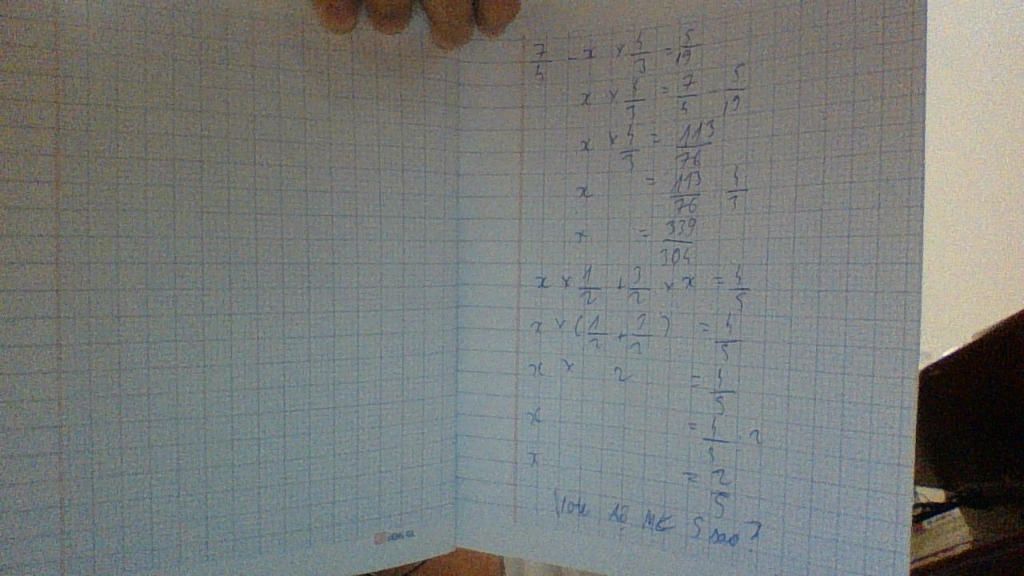 7/4 - x × 4/3 = 5/19
x × 4/3 = 7/4 - 5/19
x × 4/3 = 113/76
x = 113/76 : 4/3
x = 339/304
x × 1/2 + 3/2 × x = 4/5
x × (1/2 + 3/2) = 4/5
x × 2 = 4/5
x = 4/5 : 2
x = 2/5
5 sao ?